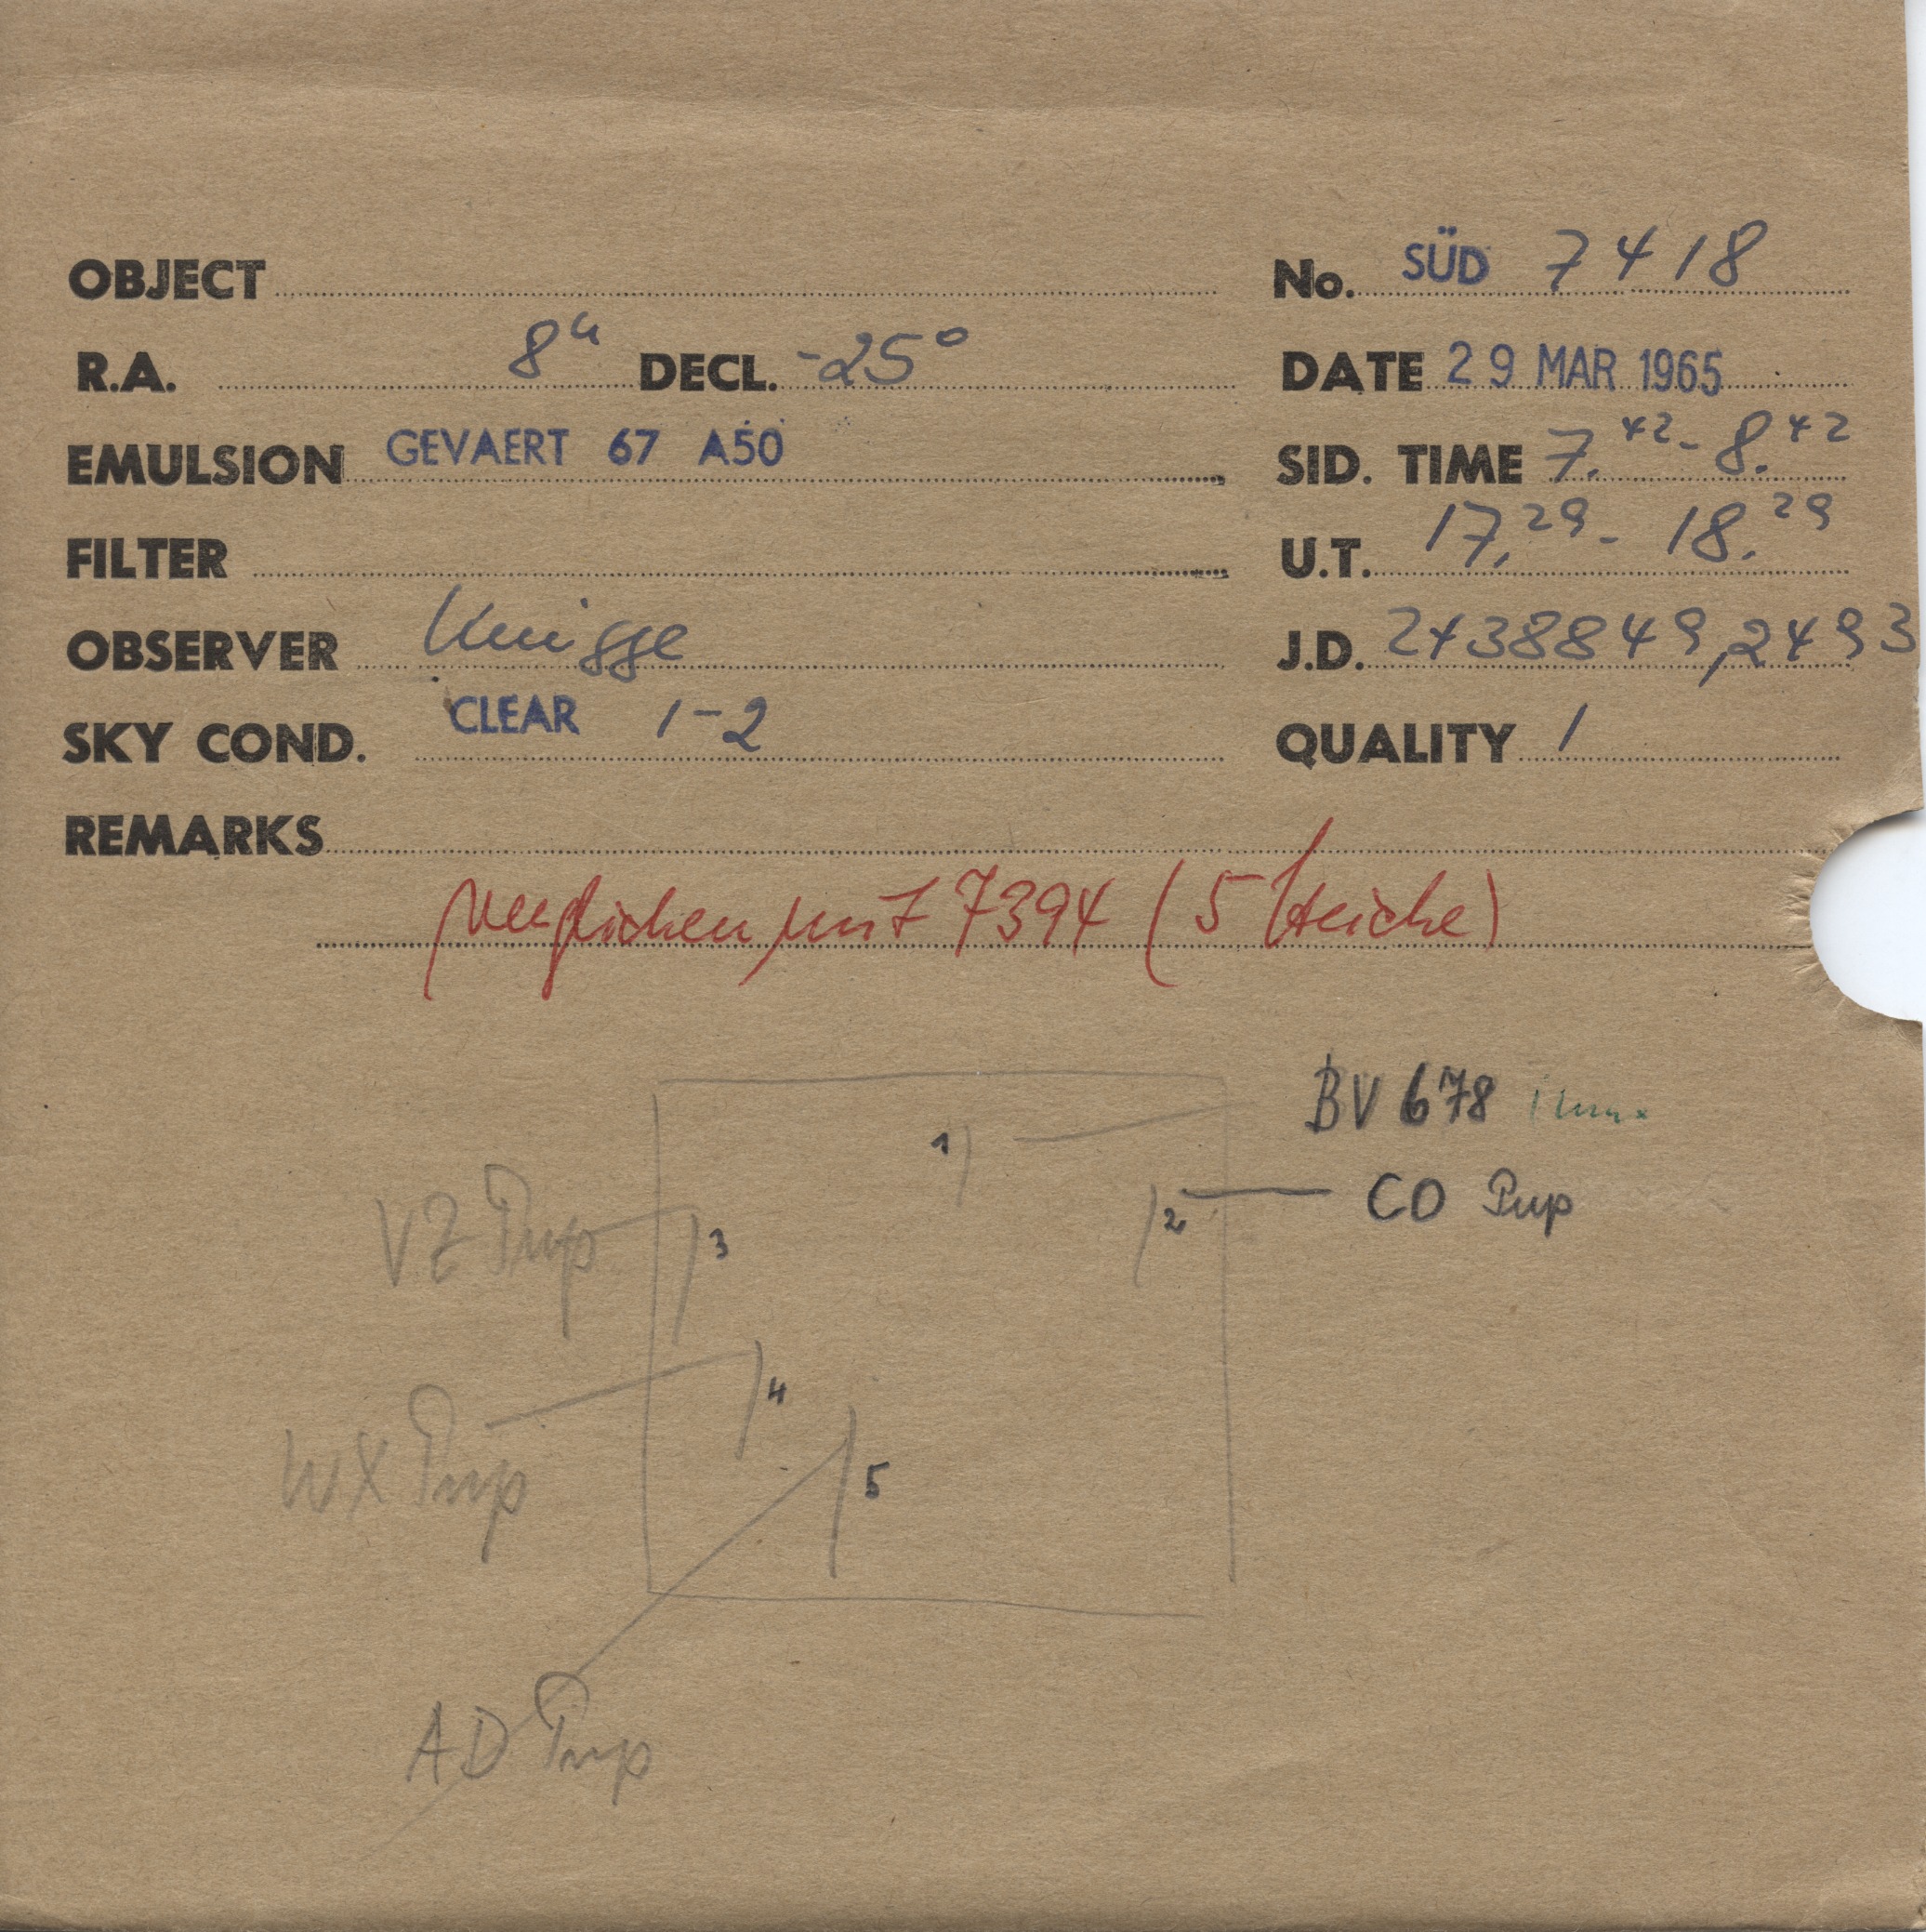 OBJECT No. SÜD 7418
R.A. 8h DECL. -25° DATE 29 MAR 1965
EMULSION GEVAERT 67 A50 SID. TIME 7.42 - 8.42
FILTER U.T. 17.29 - 18.29
OBSERVER Knigge J.D. 2438849,2493
SKY COND. CLEAR 1-2 QUALITY 1
REMARKS
verglichen mit 7394 (5 Striche)
BV 678
1
CO Pup
2
VZ Pup
3
4
WX Pup
5
AD Pup